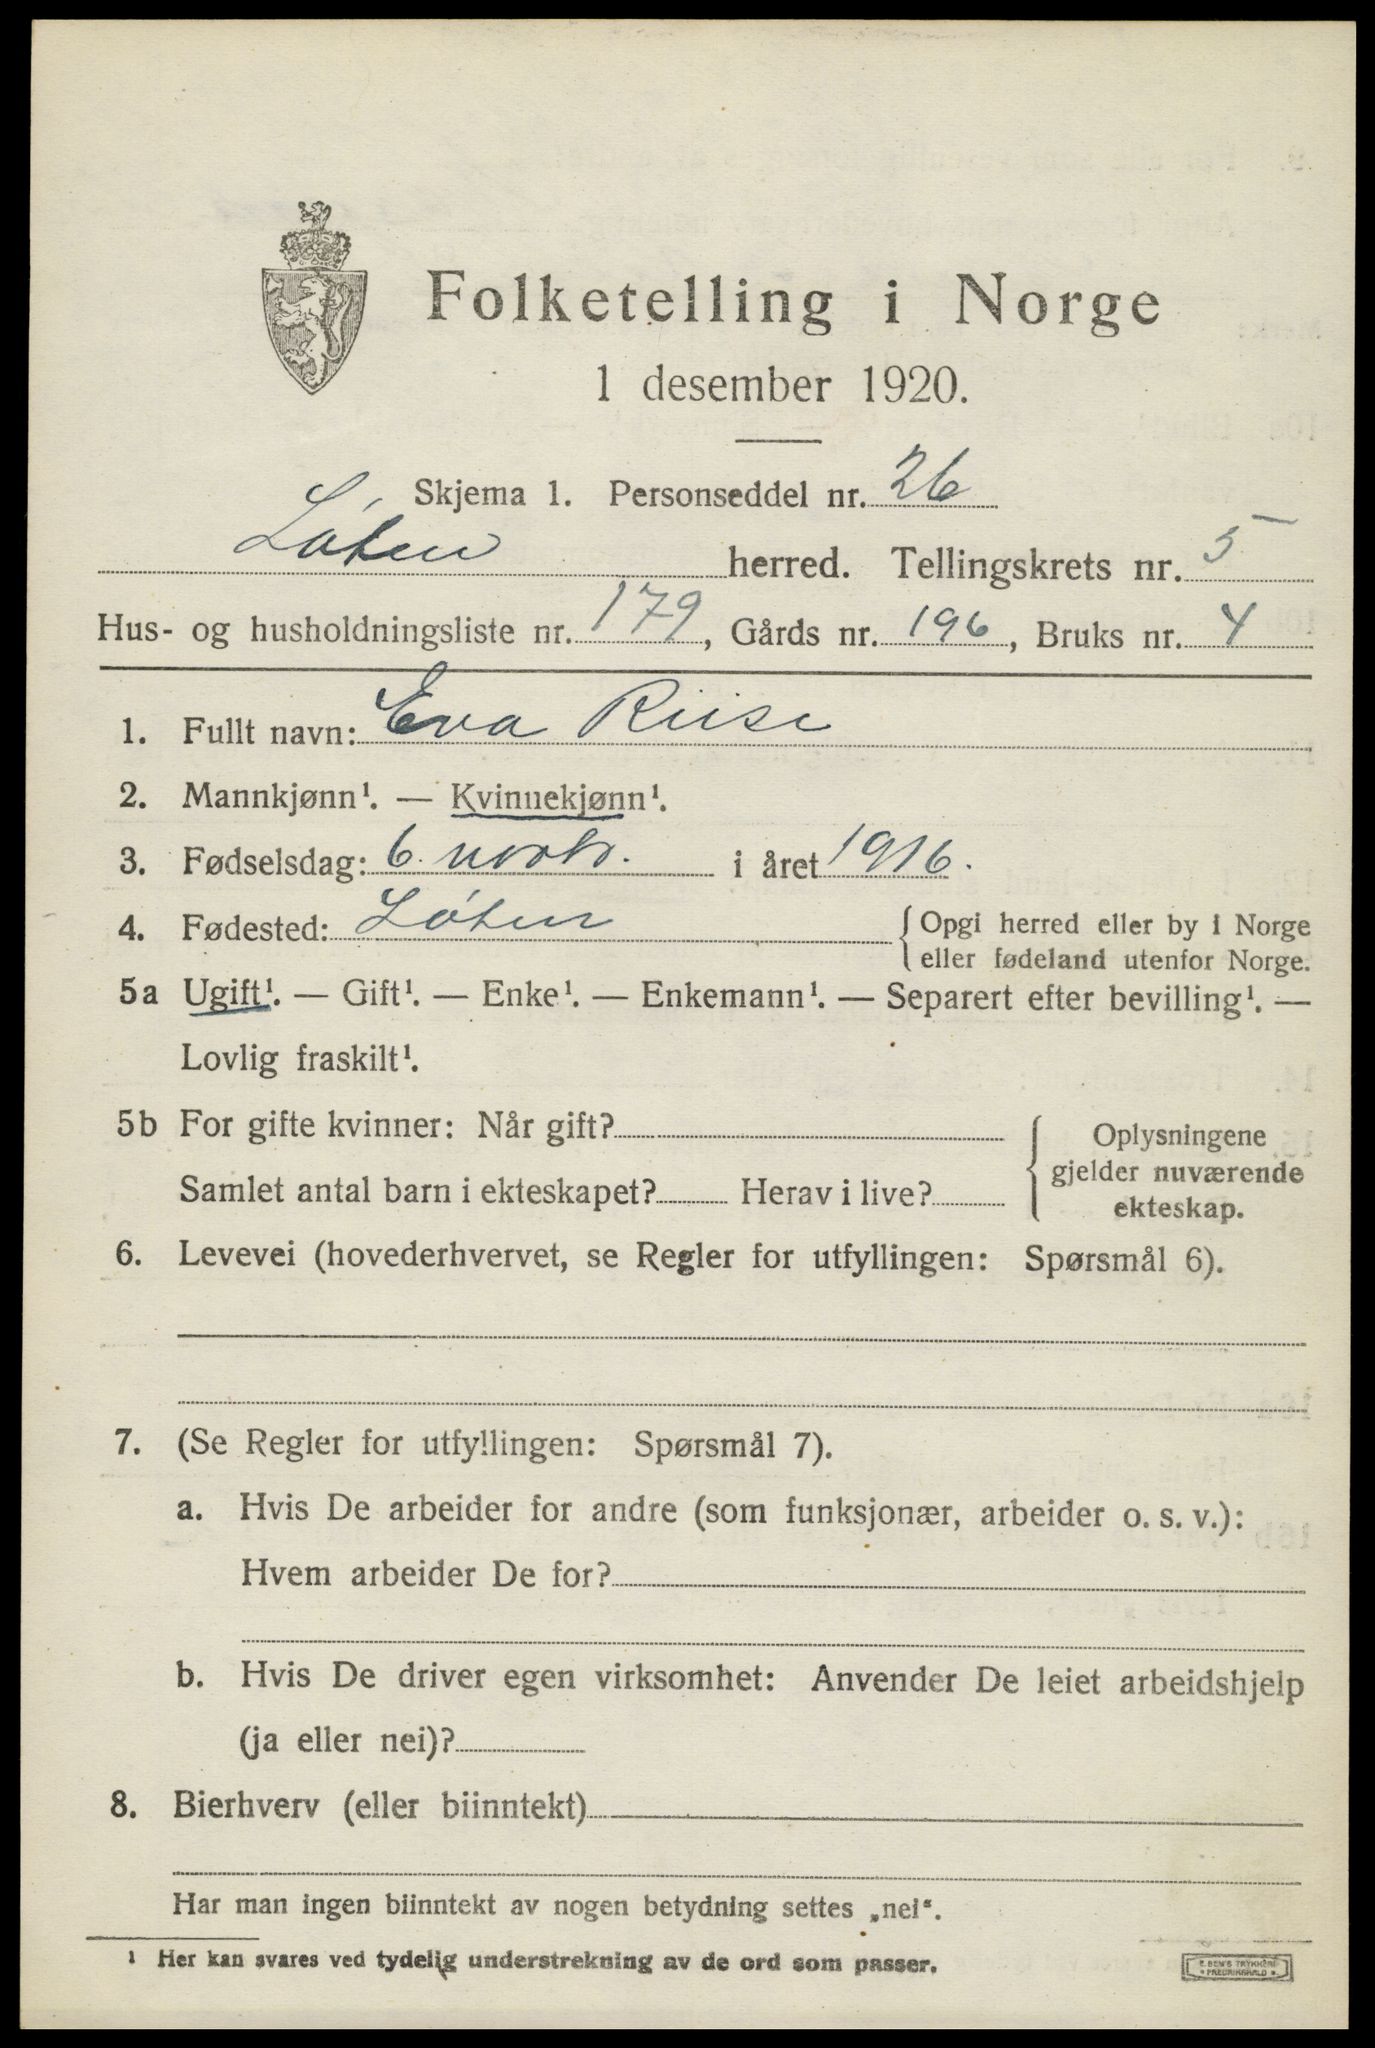 Folketelling i Norge
1 desember 1920.
Skjema 1. Personseddel nr. 26
Løten herred. Tellingskrets nr. 5
Hus- og husholdningsliste nr. 179, Gårds nr. 196, Bruks nr. 4
1. Fullt navn: Eva Riise
2. Mannkjønn¹. — Kvinnekjønn¹.
3. Fødselsdag: 6. novbr. i året 1916.
4. Fødested: Løten { Opgi herred eller by i Norge
eller fødeland utenfor Norge.
5a Ugift¹. — Gift¹. — Enke¹. — Enkemann¹. — Separert efter bevilling¹. —
Lovlig fraskilt¹.
5b For gifte kvinner: Når gift?
Samlet antal barn i ekteskapet? Herav i live?
{ Oplysningene
gjelder nuværende
ekteskap.
6. Levevei (hovederhvervet, se Regler for utfyllingen: Spørsmål 6).
7. (Se Regler for utfyllingen: Spørsmål 7).
a. Hvis De arbeider for andre (som funksjonær, arbeider o. s. v.):
Hvem arbeider De for?
b. Hvis De driver egen virksomhet: Anvender De leiet arbeidshjelp
(ja eller nei)?
8. Bierhverv (eller biinntekt)
Har man ingen biinntekt av nogen betydning settes „nei“.
¹ Her kan svares ved tydelig understrekning av de ord som passer.
E. SEM'S TRYKKERI
FREDRIKSHALD